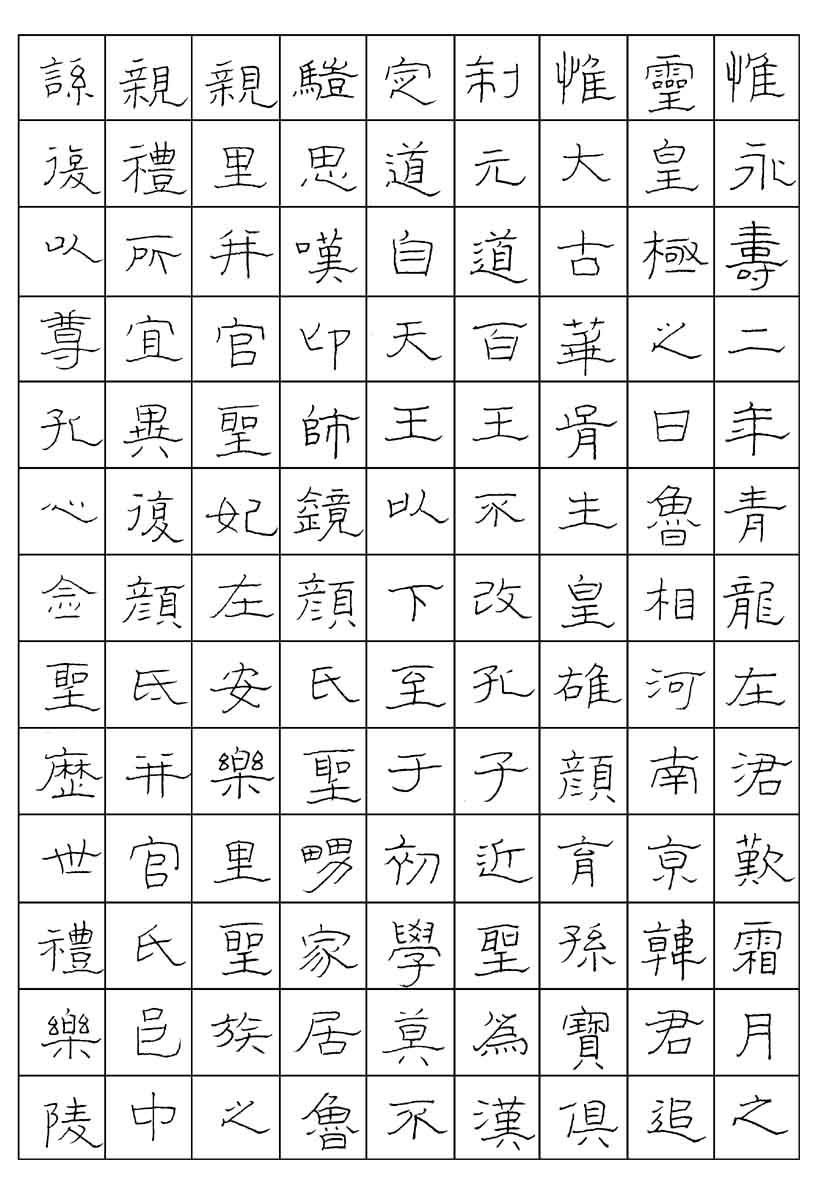 惟永壽二年青龍在涒歎霜月之
靈皇極之日魯相河南京韓君追
惟大古華胥生皇雄顏育孫寶俱
制元道百王不改孔子近聖為漢
定道自天王以下至于初學莫不
驥思嘆卬師鏡顏氏聖舅家居魯
親里并官聖妃左安樂里聖族之
親禮所宜異復顏氏并官氏邑中
繇復以尊孔心念聖歷世禮樂陵